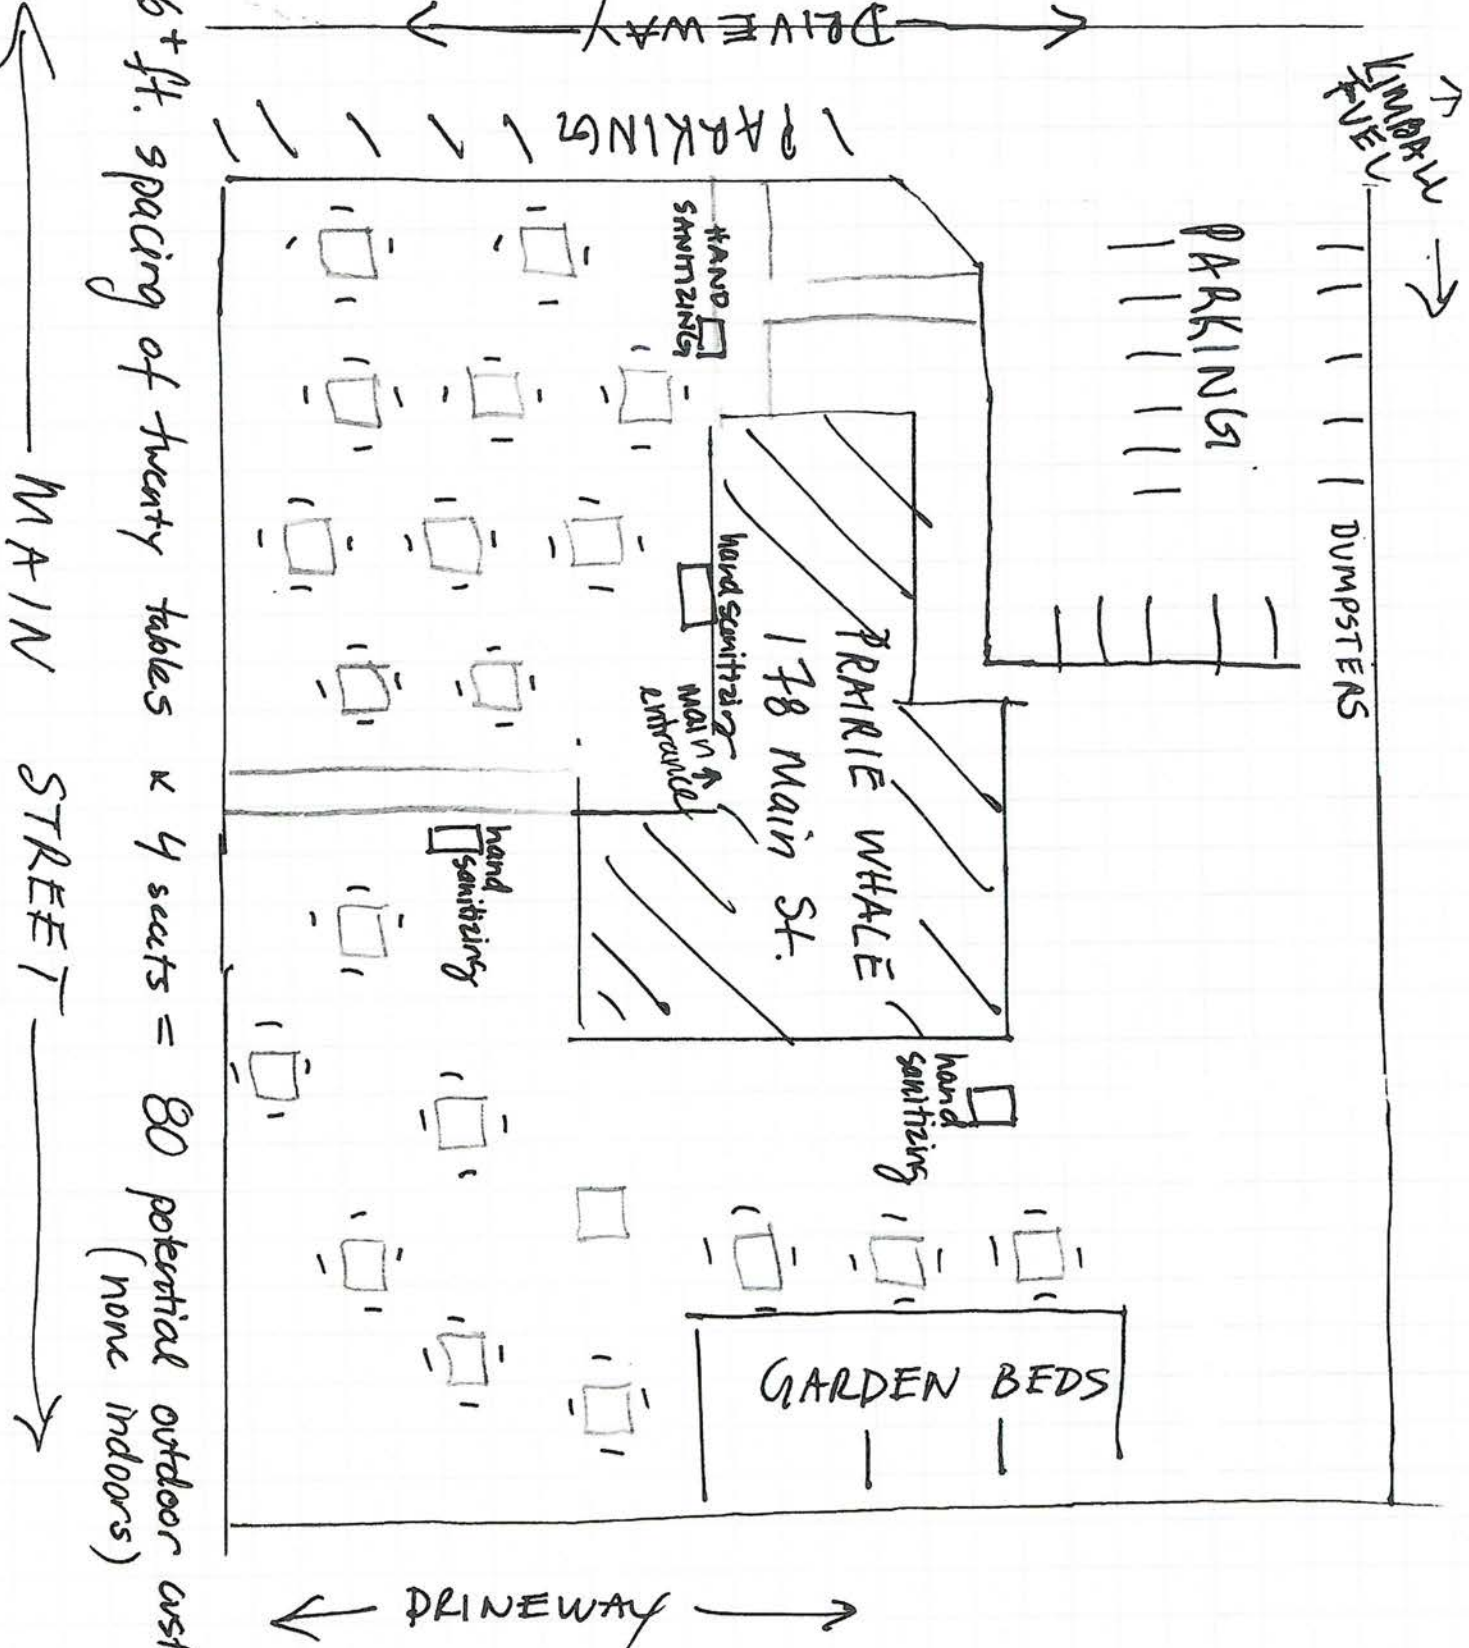 DRIVEWAY
KIMBALL
FUEL
PARKING
PARKING
DUMPSTERS
HAND
SANITIZING
hand sanitizing
main
entrance
PRAIRIE WHALE
178 Main St.
hand
sanitizing
hand
sanitizing
GARDEN BEDS
DRINEWAY
6+ ft. spacing of twenty tables x 4 seats = 80 potential outdoor cust
(none indoors)
MAIN STREET